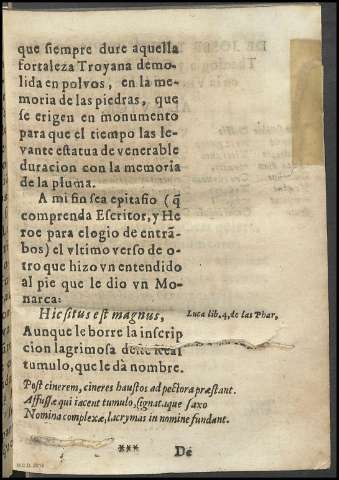 que siempre dure aquella
fortaleza Troyana demo-
lida en polvos, en la me-
moria de las piedras, que
se erigen en monumento
para que el tiempo las le-
vante estatua de venerable
duracion con la memoria
de la pluma.
A mi fin sea epitafio (q̃
comprenda Escritor, y He
roe para elogio de entrã-
bos) el vltimo verso de o-
tro que hizo vn entendido
al pie que le dio vn Mo-
narca:
Hic situs est magnus, Luca lib. 4, de las Phar,
Aunque le borre la inscrip
cion lagrimosa deste Real
tumulo, que le dà nombre.
Post cinerem, cineres haustos ad pectora præstant.
Affussæ qui iacent tumulo, signataque saxo
Nomina complexæ, lacrymas in nomine fundant.
*** De